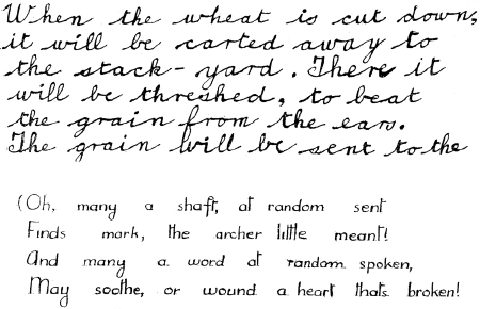 When the wheat is cut down,
it will be carted away to
the stack-yard. There it
will be threshed, to beat
the grain from the ears.
The grain will be sent to the
(Oh, many a shaft, at random sent
Finds mark, the archer little meant!
And many a word at random spoken,
May soothe, or wound a heart thats broken!